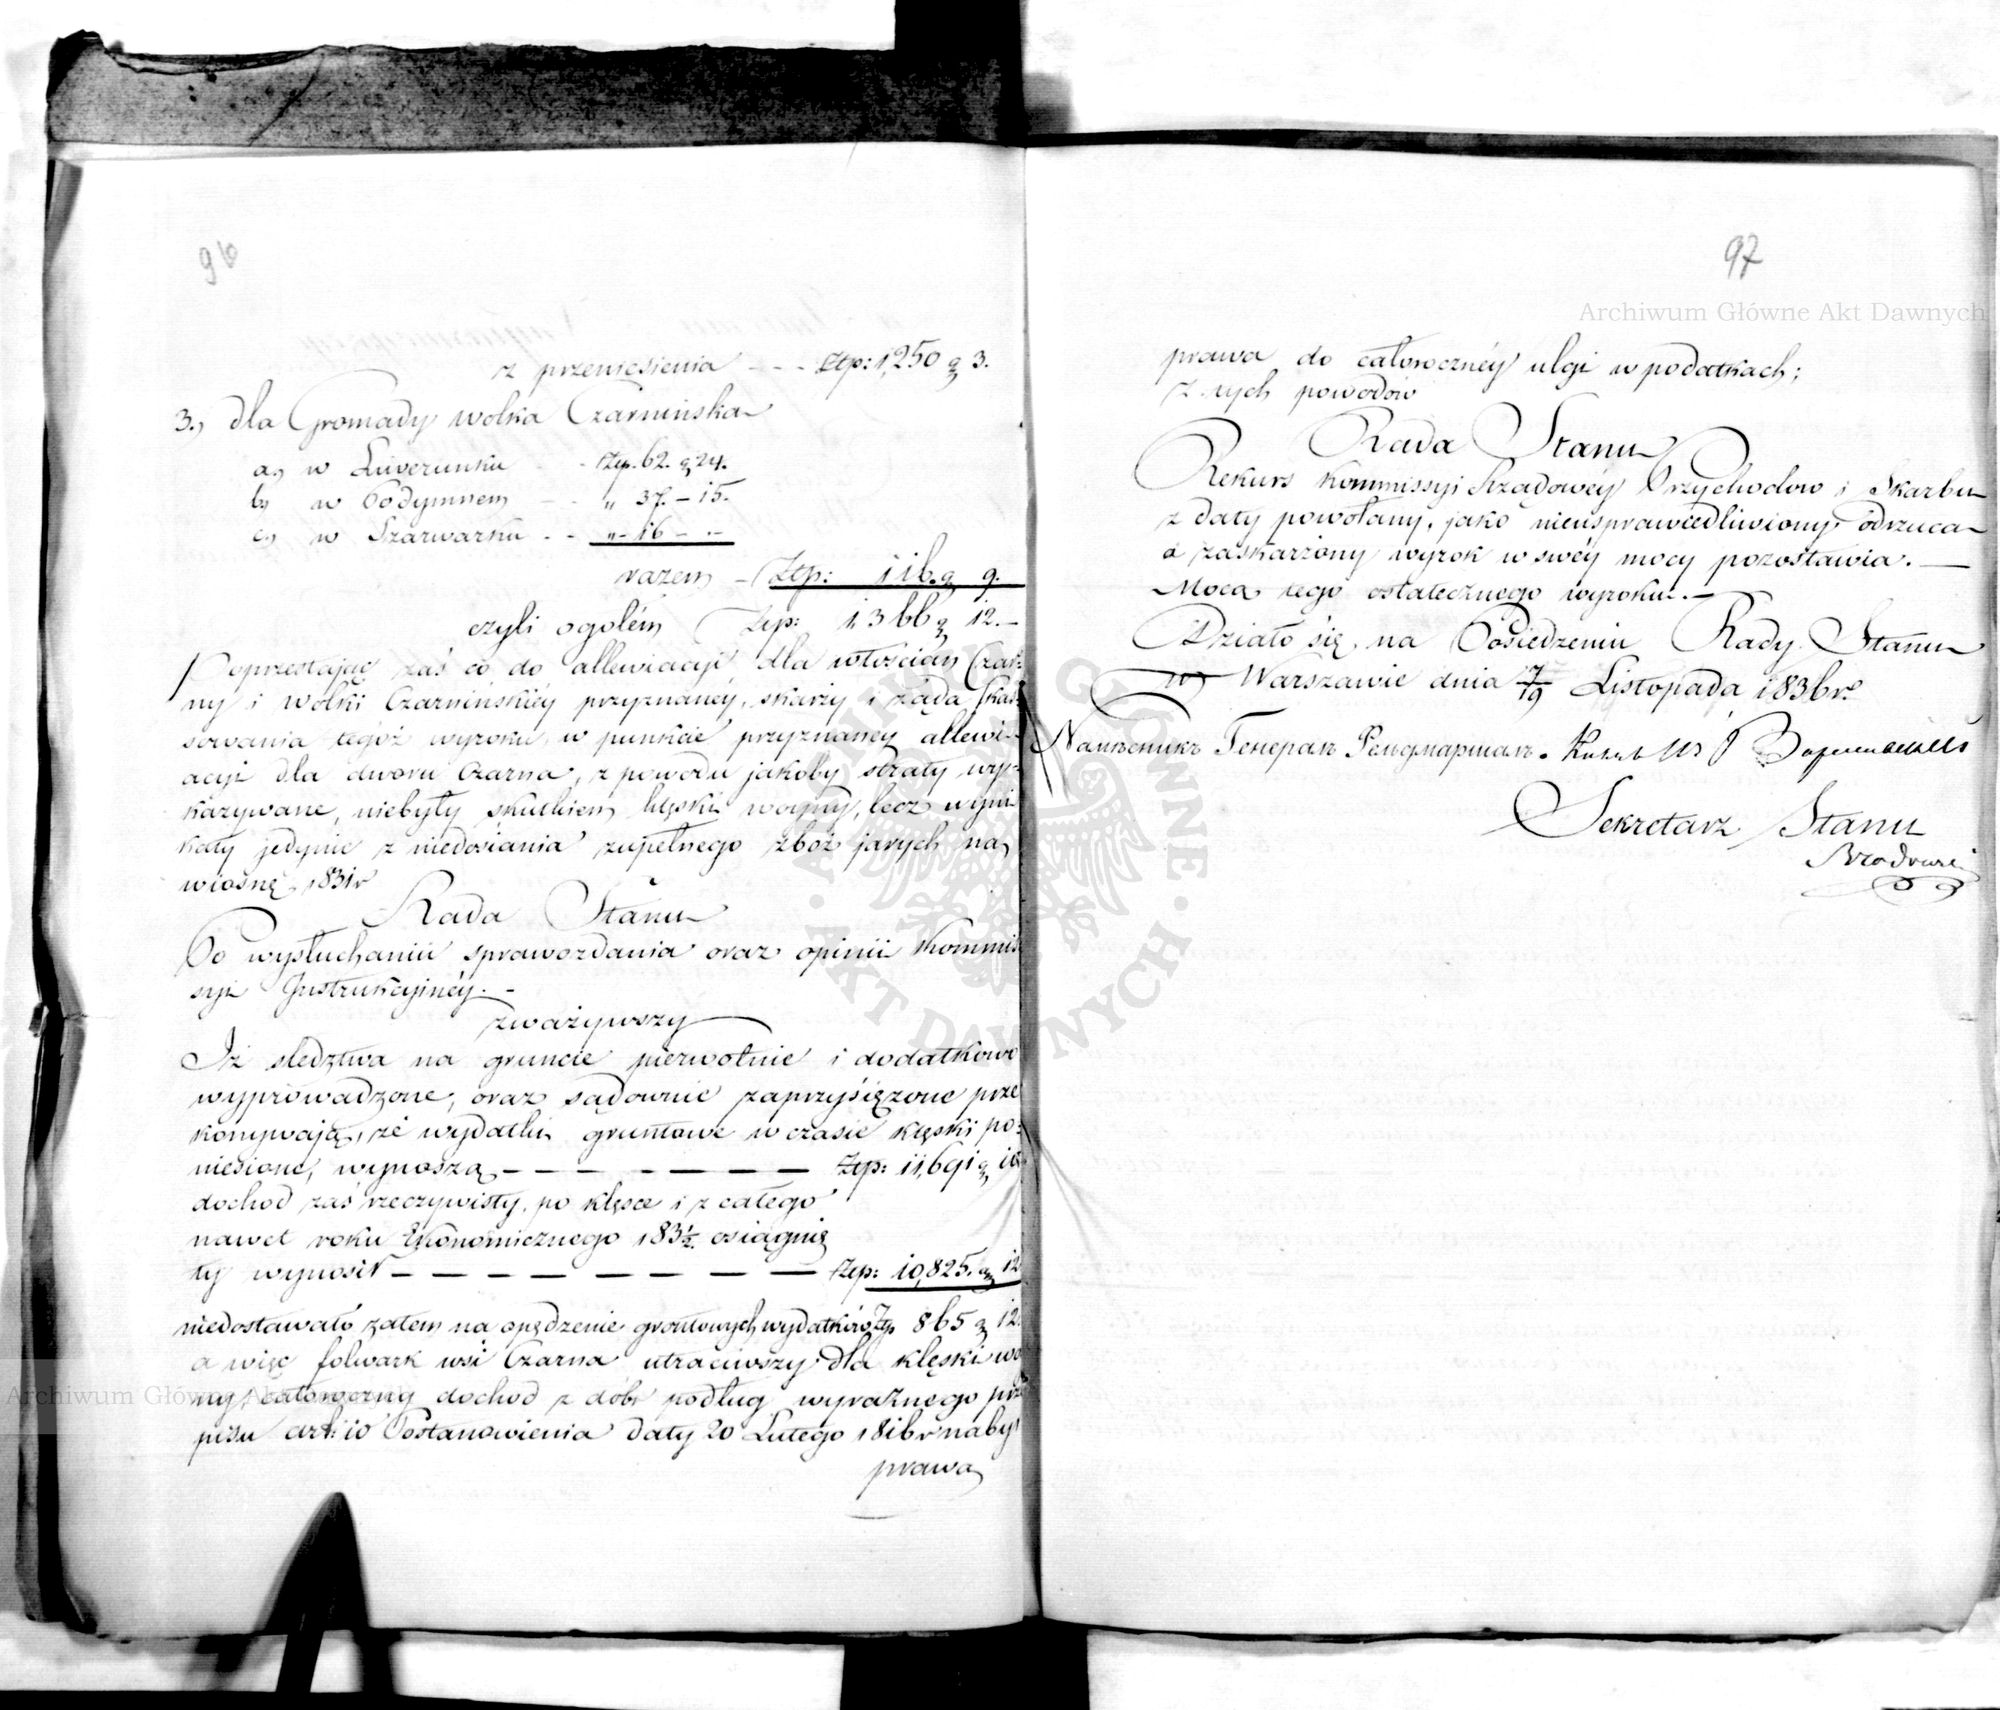 96
z przeniesienia - - - Złp: 1,250 g 3.
3., dla Gromady Wolka Czarnińska
a., w Liwerunku - - Złp. 62. g 24.
b, w Podymnem - - „ 37. – 15.
c., w Szarwarku - - „ – 16 – „ –
razem – Złp: 116. g 9.
czyli ogołem Złp: 1,366 g 12. –
Poprzestając zaś co do allewiacyi dla włościan Czar-
ny i Wolki Czarnińskiéy przyznanéy, skarży i żąda skas-
sowania tegóż wyroku, w punkcie przyznanéy allewi-
acyi dla dworu Czarna, z powodu jakoby straty wy-
kazywane, niebyły skutkiem klęski woyny, lecz wyni-
kały jedynie z niedosiania zupełnego zboż jarych na
wiosnę 1831 r
Rada Stanu
Po wysłuchaniu sprawozdania oraz opinii Kommis-
syi Instrukcyinéy. –
zważywszy
Iż sledztwa na gruncie pierwotnie i dodatkowo
wyprowadzone, oraz sądownie zaprzysiężone prze
konywają, że wydatki gruntowe w czasie klęski po-
niesione, wynoszą – – – – – – – Złp: 11,691 g
dochod zaś rzeczywisty, po klęsce i z całego
nawet roku Ekonomicznego 183½ osiągnię
ty wynosił – – – – – – – – Złp: 10,825. g 12
niedostawało zatem na opędzenie gruntowych wydatków Złp 865 g 12.
a więc folwark wsi Czarna utraciwszy dla klęski wo
ny całoroczny dochod z dóbr podług wyraźnego prze
pisu art: 10 Postanowienia daty 20 Lutego 1816 r nabył
prawa
97
Archiwum Główne Akt Dawnych
prawa do całorocznéy ulgi w podatkach;
Z tych powodów
Rada Stanu
Rekurs Kommissyi Rządowéy Przychodow i Skarbu
z daty powołany, jako nieusprawiedliwiony odrzuca
a zaskarżony wyrok w swéy mocy pozostawia. –
Mocą tego ostatecznego wyroku. –
Działo się na Posiedzeniu Rady Stanu
w Warszawie dnia 7/19 Listopada 1836 r.
Намѣстникъ Генералъ Фельдмаршалъ.
Sekretarz Stanu
ARCHIWUM GŁÓWNE · AKT DAWNYCH ·
Archiwum Główne Akt Dawnych